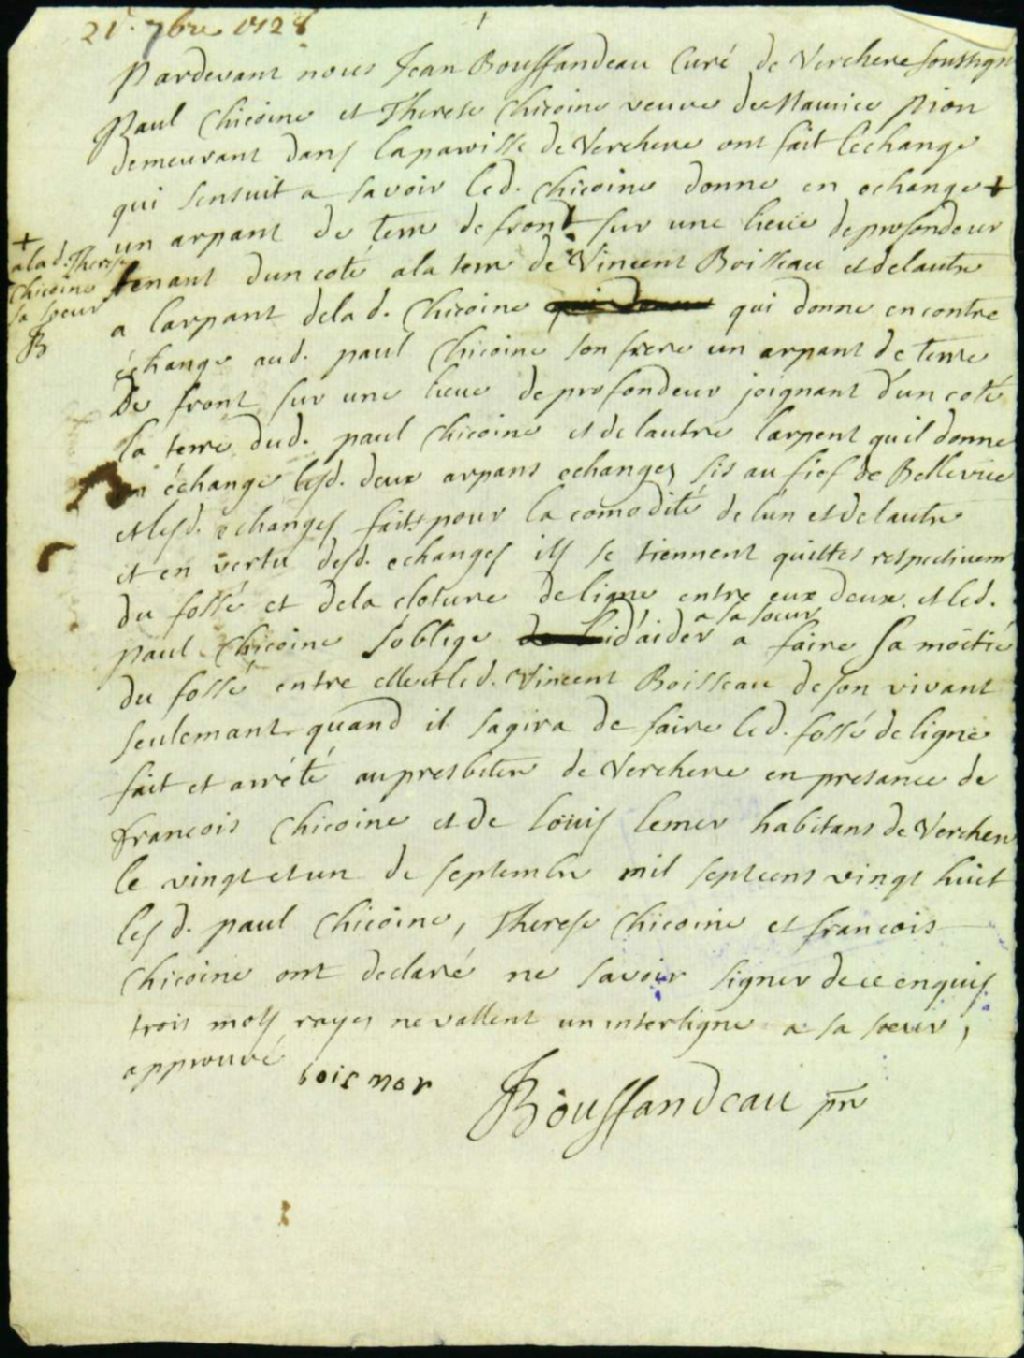 21e. 7bre 1728
Pardevant nous Jean Bouffandeau Curé de Verchere soussign
Paul Chicoine et Therese Chicoine veuve de Maurice Pion
demeurant dans la paroisse de Verchere ont fait lechange
qui sensuit a savoir led. Chicoine donne en echange +
un arpant de terre de front sur une lieue de profondeur
+
a lad. Therese
Chicoine
sa soeur
B
tenant dun coté a la terre de Vincent Boisseau et de lautre
a larpant de la d. Chicoine qui donne en contre
échange aud. paul Chicoine son frere un arpant de terre
de front sur une lieue de profondeur joignant d'un coté
la terre dud. paul Chicoine et de lautre larpent quil donne
en échange lesd. deux arpans echanges sis au fief de Bellevue
et lesd. echanges faits pour la comodité de lun et de lautre
et en vertu desd. echanges ils se tiennent quittes respectivem
du fossé et de la cloture de ligne entre eux deux. et led.
a sa soeur
paul Chicoine soblige d'aider a faire sa moitié
du fossé entre elle et led. Vincent Boisseau de son vivant
seulemant quand il sagira de faire led. fossé de ligne
fait et arrété au presbitere de Verchere en presance de
francois Chicoine et de louis lemer habitans de Verchere
le vingt et un de septembre mil sept cens vingt huit
lesd. paul Chicoine, Therese Chicoine et francois
Chicoine ont declaré ne savoir signer de ce enquis
trois mots rayes ne vallent un interligne a sa soeur,
approuvé
Bouffandeau ptre